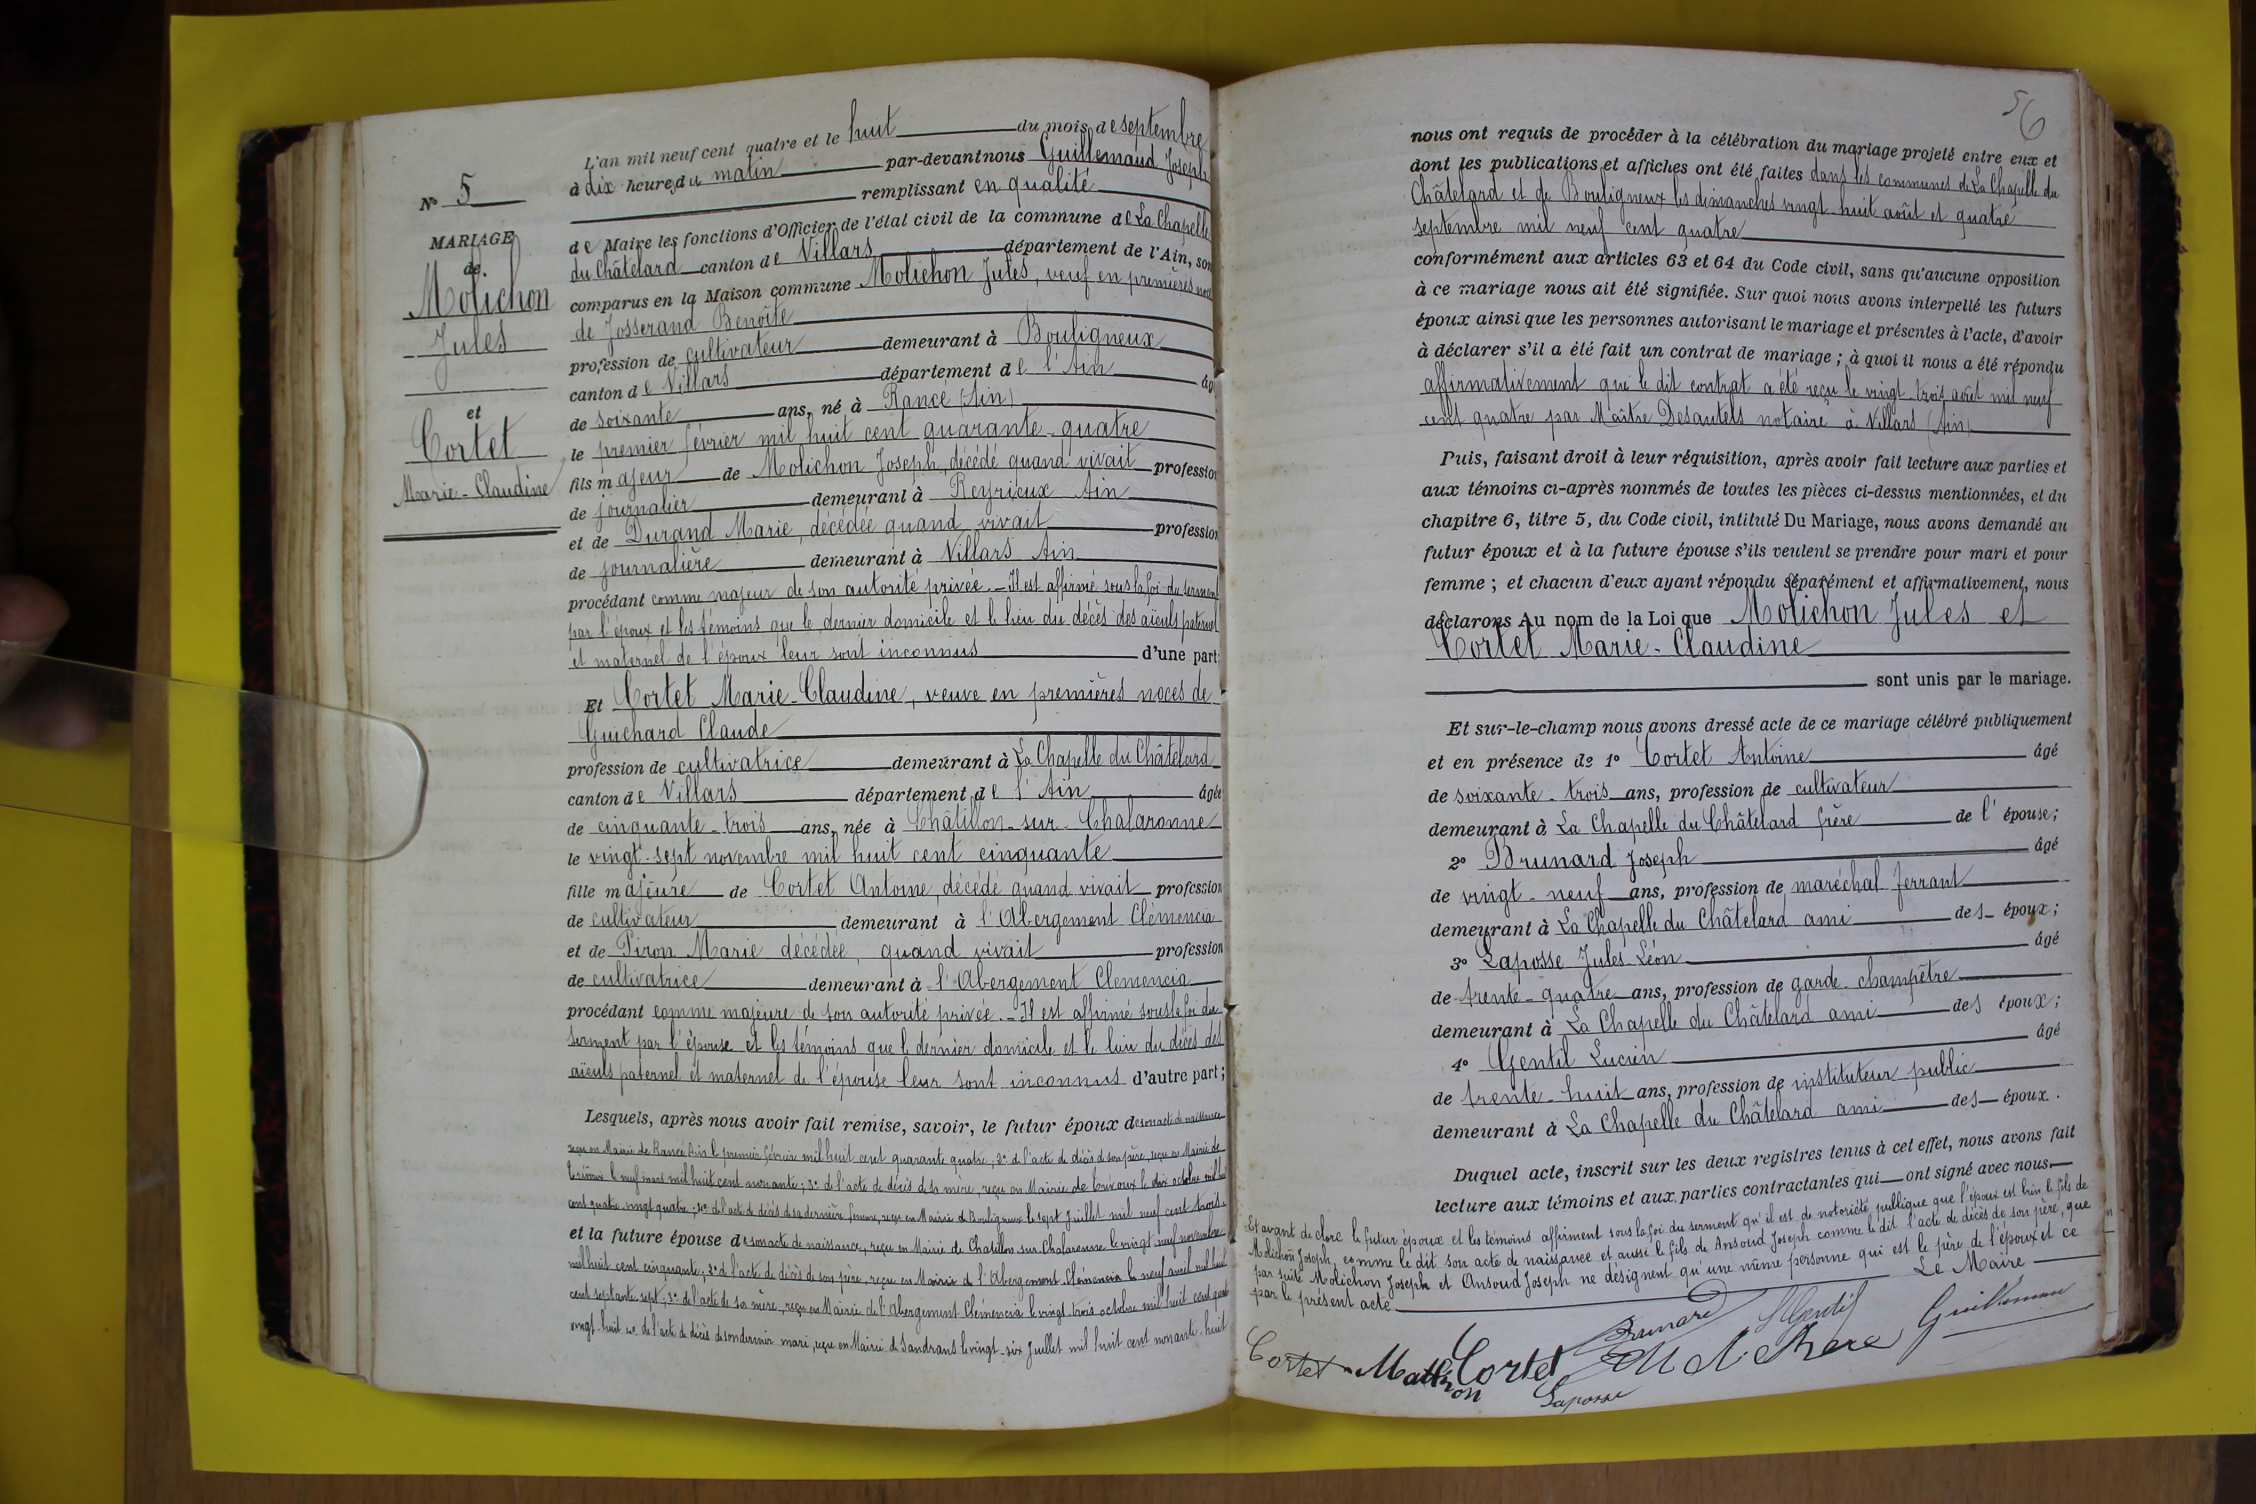 N° 5
MARIAGE
de
Molichon
Jules
et
Cortet
Marie-Claudine
L'an mil neuf cent quatre et le huit du mois de septembre
à dix heures du matin par-devant nous Guillemaud Joseph
remplissant en qualité
de Maire les fonctions d'Officier de l'état civil de la commune de La Chapelle
du Châtelard canton de Villars département de l'Ain, son
comparus en la Maison commune Molichon Jules, veuf en premières noces
de Josserand Benoite
profession de cultivateur demeurant à Bouligneux
canton de Villars département de l'Ain âg
de soixante ans, né à Rancé (Ain)
le premier février mil huit cent quarante-quatre
fils majeur de Molichon Joseph, décédé quand vivait profession
de journalier demeurant à Reyrieux Ain
et de Durand Marie, décédée quand vivait profession
de journalière demeurant à Villars Ain
procédant comme majeur de son autorité privée. - Il est affirmé sous la foi du serment
par l'époux et les témoins que le dernier domicile et le lieu du décès des aïeuls paternel
et maternel de l'époux leur sont inconnus d'une part;
Et Cortet Marie-Claudine, veuve en premières noces de
Guichard Claude
profession de cultivatrice demeurant à La Chapelle du Châtelard
canton de Villars département de l'Ain âgée
de cinquante-trois ans, née à Châtillon-sur-Chalaronne
le vingt-sept novembre mil huit cent cinquante
fille majeure de Cortet Antoine, décédé quand vivait profession
de cultivateur demeurant à l'Abergement Clémencia
et de Piron Marie décédée, quand vivait profession
de cultivatrice demeurant à l'Abergement Clemencia
procédant comme majeure de son autorité privée. - Il est affirmé sous la foi du
serment par l'épouse et les témoins que le dernier domicile et le lieu du décès des
aïeuls paternel et maternel de l'épouse leur sont inconnus d'autre part;
Lesquels, après nous avoir fait remise, savoir, le futur époux de son acte de naissance
reçu en Mairie de Rancé Ain le premier février mil huit cent quarante quatre, 2° de l'acte de décès de son père, reçu en Mairie de
le neuf mars mil huit cent nonante; 3° de l'acte de décès de sa mère, reçu en Mairie de le dix octobre mil huit
cent quatre-vingt quatre; 4° de l'acte de décès de sa dernière femme, reçu en Mairie de Bouligneux le sept Juillet mil neuf cent trois
et la future épouse de son acte de naissance, reçu en Mairie de Chatillon sur Chalaronne le vingt neuf novembre
mil huit cent cinquante; 2° de l'acte de décès de son père, reçu en Mairie de l'Abergement Clémencia le neuf avril mil huit
cent septante sept; 3° de l'acte de sa mère, reçu en Mairie de l'Abergement Clémencia le vingt trois octobre mil huit cent quatre
vingt-huit 4° de l'acte de décès de son dernier mari, reçu en Mairie de Sandrans le vingt-six Juillet mil huit cent nonante-huit
56
nous ont requis de procéder à la célébration du mariage projeté entre eux et
dont les publications et affiches ont été faites dans les communes de La Chapelle du
Châtelard et de Bouligneux les dimanches vingt-huit août et quatre
septembre mil neuf cent quatre
conformément aux articles 63 et 64 du Code civil, sans qu'aucune opposition
à ce mariage nous ait été signifiée. Sur quoi nous avons interpellé les futurs
époux ainsi que les personnes autorisant le mariage et présentes à l'acte, d'avoir
à déclarer s'il a été fait un contrat de mariage; à quoi il nous a été répondu
affirmativement que le dit contrat a été reçu le vingt-trois août mil neuf
cent quatre par Maître Desautels notaire à Villars (Ain)
Puis, faisant droit à leur réquisition, après avoir fait lecture aux parties et
aux témoins ci-après nommés de toutes les pièces ci-dessus mentionnées, et du
chapitre 6, titre 5, du Code civil, intitulé Du Mariage, nous avons demandé au
futur époux et à la future épouse s'ils veulent se prendre pour mari et pour
femme; et chacun d'eux ayant répondu séparément et affirmativement, nous
déclarons Au nom de la Loi que Molichon Jules et
Cortet Marie-Claudine
sont unis par le mariage.
Et sur-le-champ nous avons dressé acte de ce mariage célébré publiquement
et en présence de 1° Cortet Antoine âgé
de soixante-trois ans, profession de cultivateur
demeurant à La Chapelle du Châtelard frère de l'épouse;
2° Brunard Joseph âgé
de vingt-neuf ans, profession de maréchal ferrant
demeurant à La Chapelle du Châtelard ami des époux;
3° Laposse Jules-Léon âgé
de trente-quatre ans, profession de garde-champêtre
demeurant à La Chapelle du Châtelard ami des époux;
4° Gentil Lucien âgé
de trente-huit ans, profession de instituteur public
demeurant à La Chapelle du Châtelard ami des époux.
Duquel acte, inscrit sur les deux registres tenus à cet effet, nous avons fait
lecture aux témoins et aux parties contractantes qui ont signé avec nous
Et avant de clore le futur époux et les témoins affirment sous la foi du serment qu'il est de notoriété publique que l'époux est bien le fils de
Molichon Joseph, comme le dit son acte de naissance et aussi le fils de Ansoud Joseph comme le dit l'acte de décès de son père, que
par suite Molichon Joseph et Ansoud Joseph ne désignent qu'une même personne qui est le père de l'époux et ce
par le présent acte Le Maire
Brunard LGentil Guillemau
Cortet Cortet
Laposse